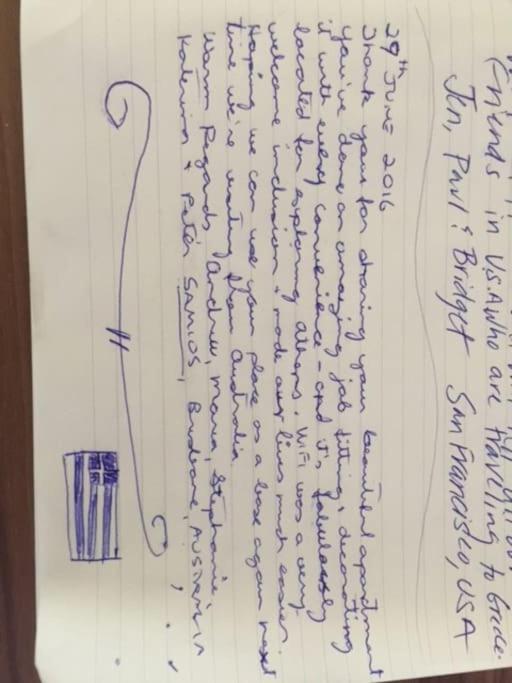 Friends in U.S.A who are traveling to Greece.
Jen, Paul & Bridget San Francisco, USA
29th June 2016
Thank you for sharing your beautiful apartment
You've done an amazing job fitting & decorating
it with every convenience - and it's fabulously
located for exploring athens. WiFi was a very
welcome inclusion & made our lives much easier.
Hoping we can use your place as a base again next
time we're visiting from Australia.
Warm Regards, Andrew, Maria, Stephanie,
Katerina & Peter SAMIOS, Brisbane AUSTRALIA